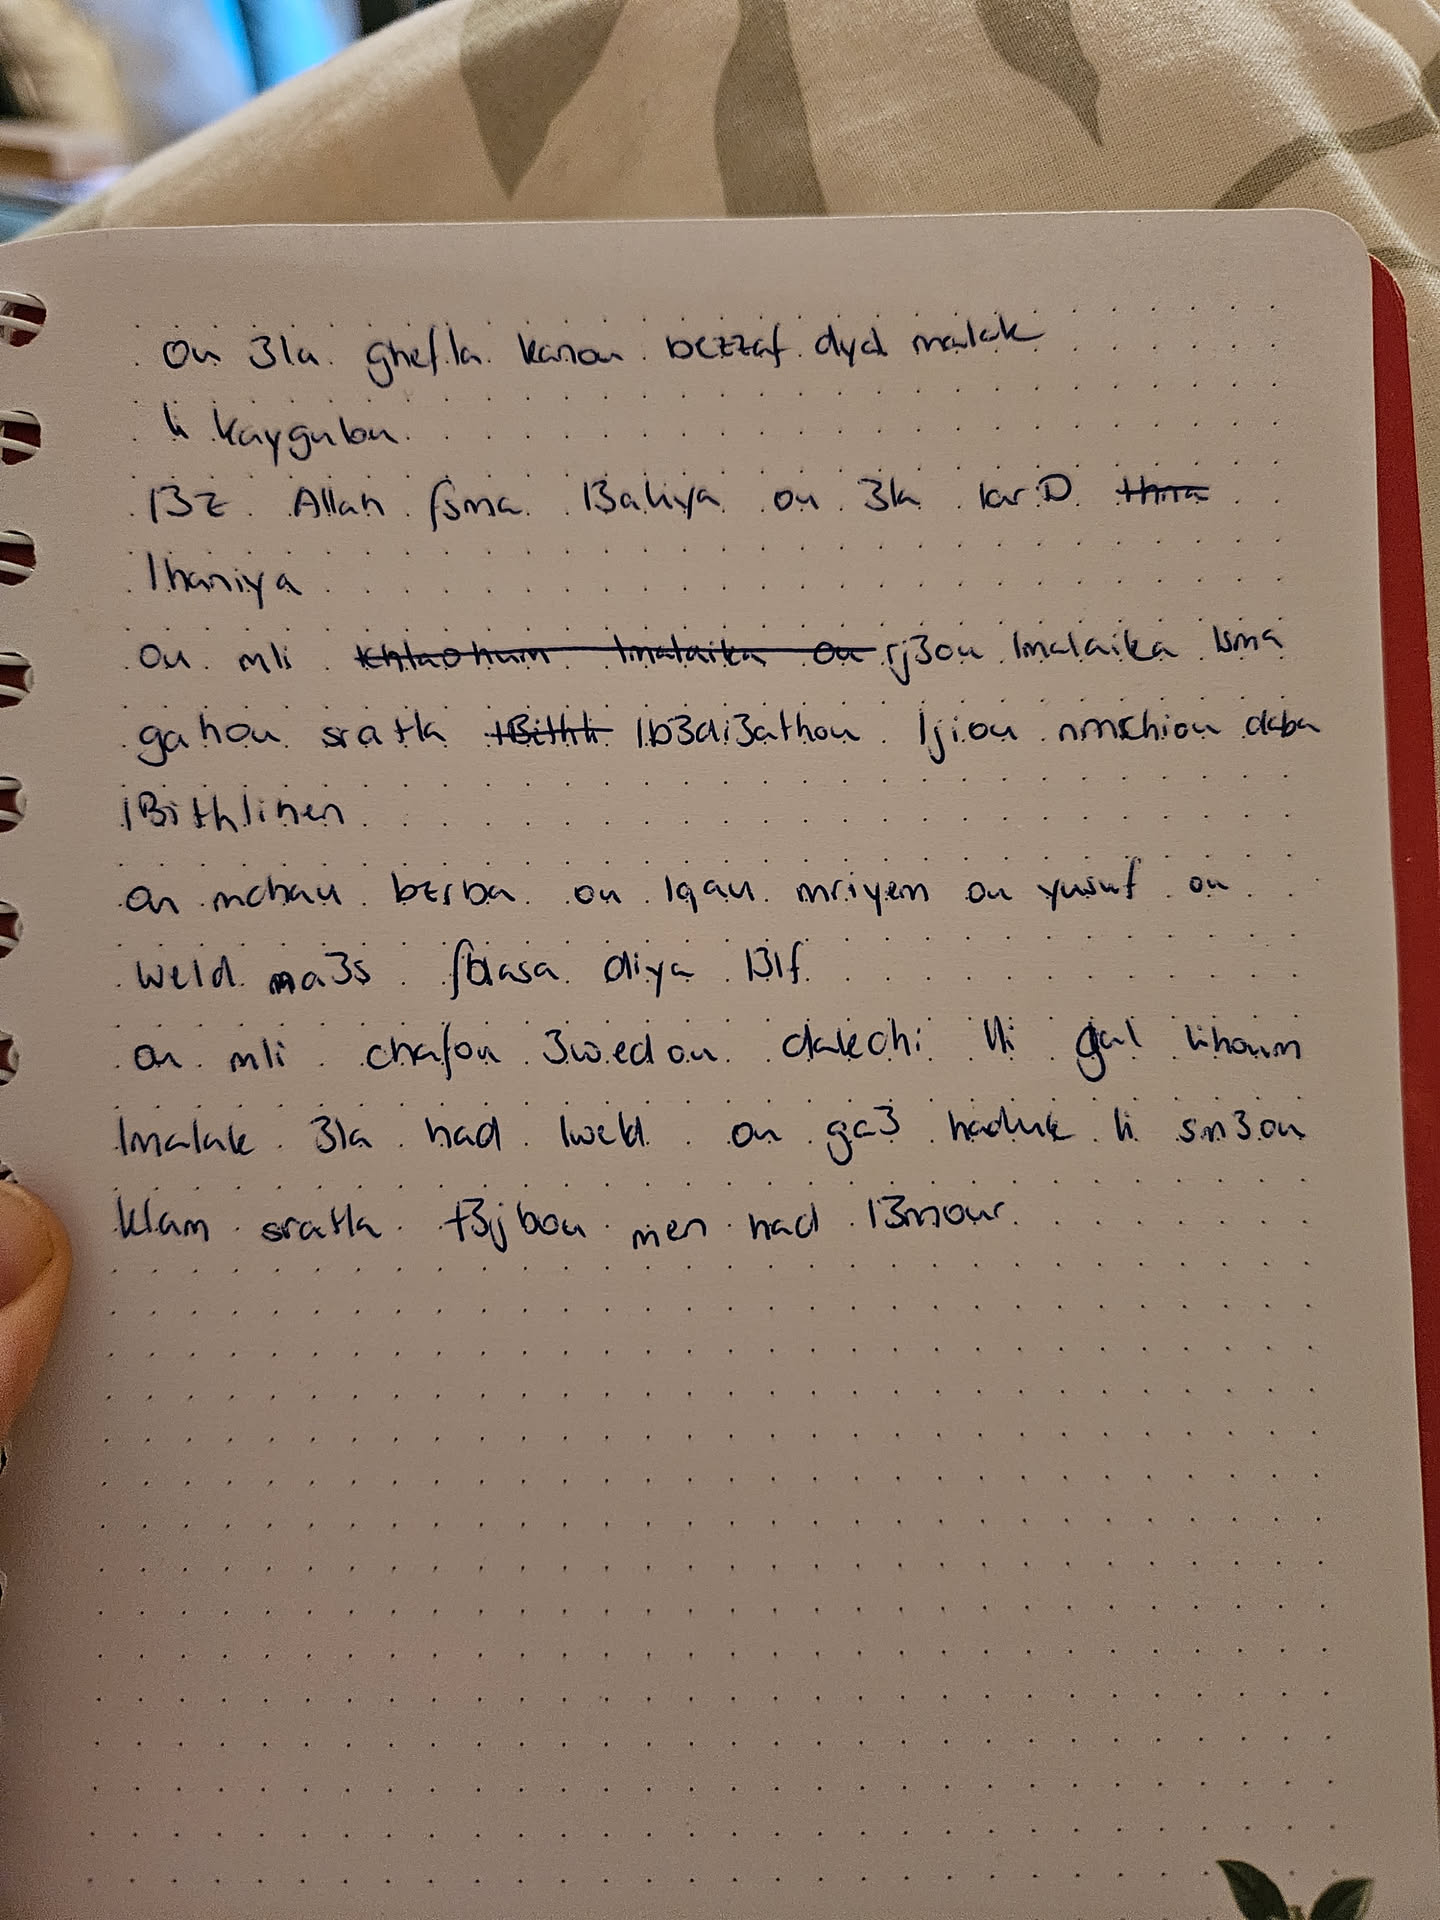 ou 3la ghefla kanou bezzaf dyal malak
li kaygulou
l3z Allah fsma l3aliya ou 3la larD
lhaniya
ou mli rj3ou lmalaika lsma
gahou sratla lb3di3athou ljiou nmchiou daba
lBithlihen
ou mchau bzrba ou lqau mriyem ou yusuf ou
weld na3s fblasa diya l3lf
ou mli chafou 3wedou dakchi lli gal lihoum
lmalak 3la had lweld ou ga3 haduk li sm3ou
klam sratla t3jbou men had l3mour